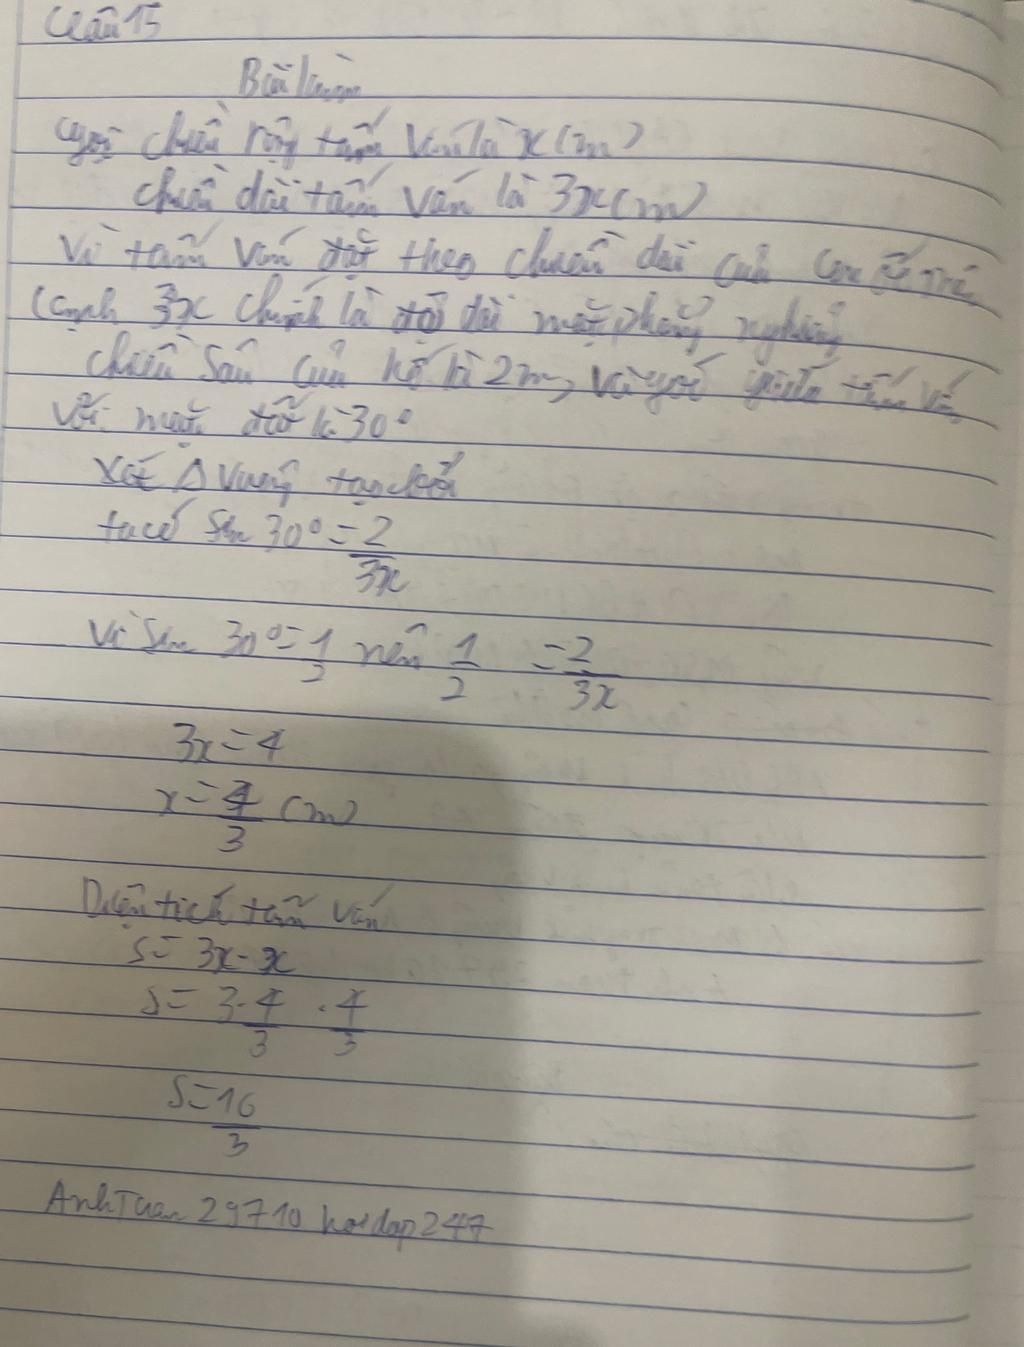 Câu 15
Bài làm
Gọi chiều rộng tấm ván là x (m)
chiều dài tấm ván là 3x (m)
Vì tấm ván đặt theo chiều dài của
Cạnh 3x chính là độ dài mặt phẳng nghiêng
chiều sâu của hố là 2m, và góc giữa tấm ván
với mặt đất là 30°
xét Δ vuông tại
ta có sin 30° = 2/3x
Vì sin 30° = 1/2 nên 1/2 = 2/3x
3x = 4
x = 4/3 (m)
Diện tích tấm ván
S = 3x · x
S = 3 · 4/3 · 4/3
S = 16/3
AnhTuan 29710 hoidap247